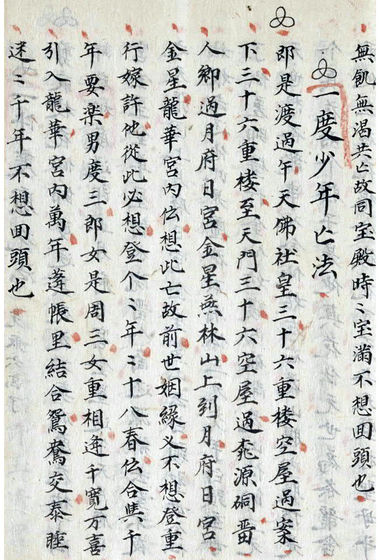 無飢無渴共亡故同宝殿時〻宝滿不想回頭也
一度少年亡法
即是渡過午天佛社皇三十六重楼空屋過案
下三十六重楼至天門三十六空屋過桃源硐番
人鄉過月府日宮金星燕林山上到月府日宮
金星龍華宮内伝想此亡故前世姻緣义不想登重
行嫁許他從此必想登个〻年〻十八春伝合与千
年要楽男度三郎女是周三女重相逢千寬万喜
引入龍華宮内萬年蓬帳里結合鴛鴦交泰睡
迷〻千年不想回頭也